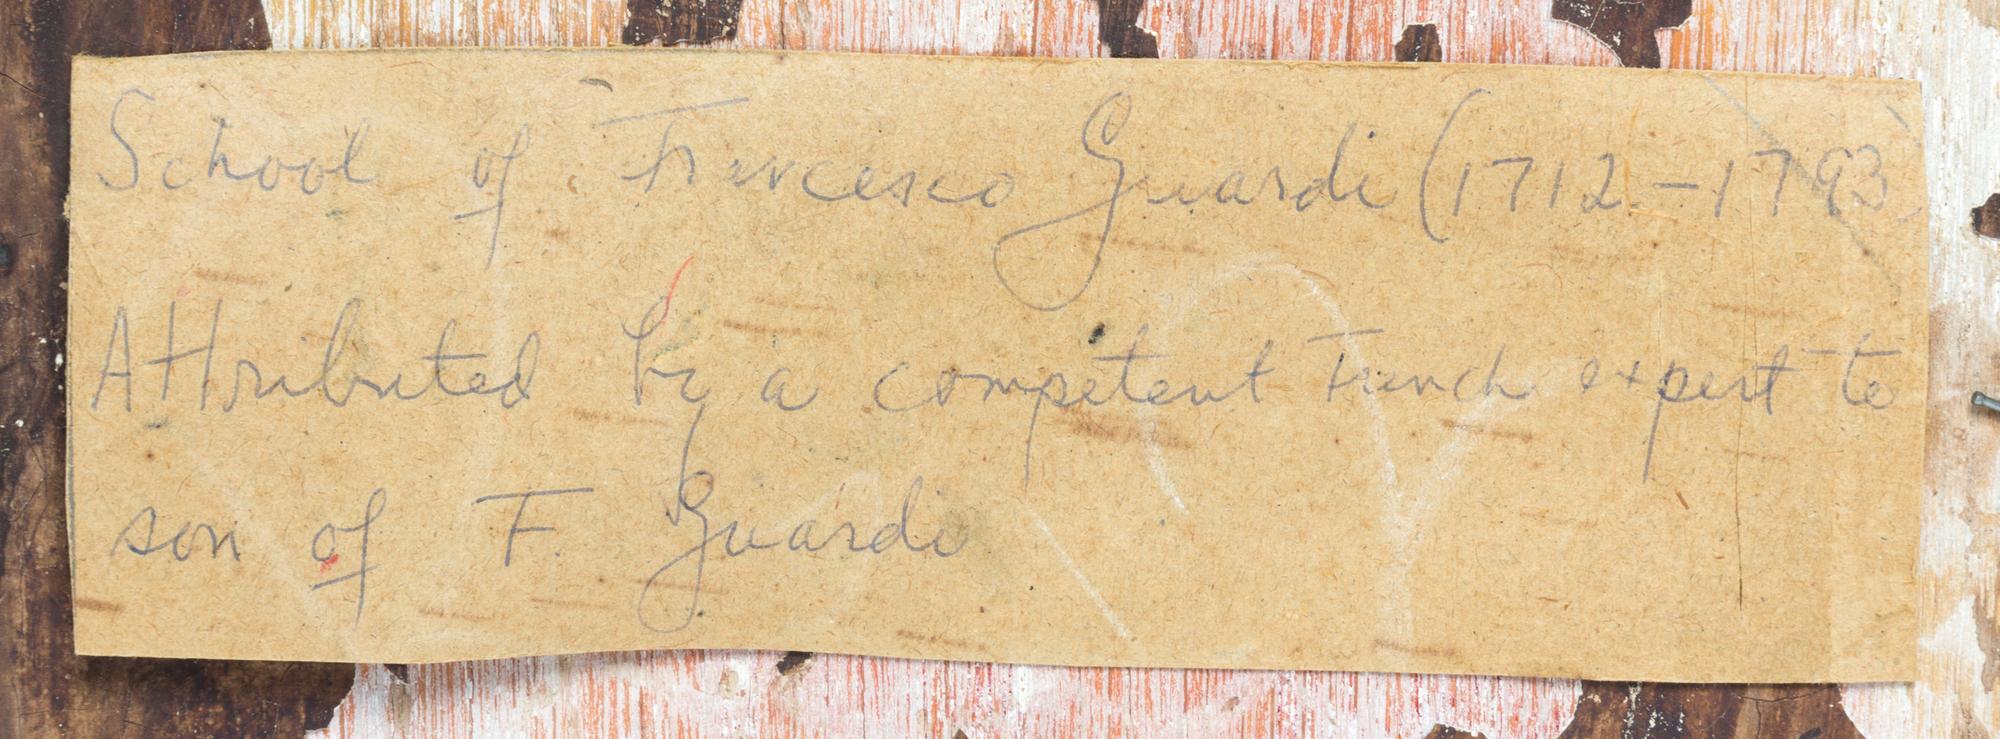 School of Francesco Guardi (1712-1793)
Attributed by a competent French expert to
son of F. Guardi